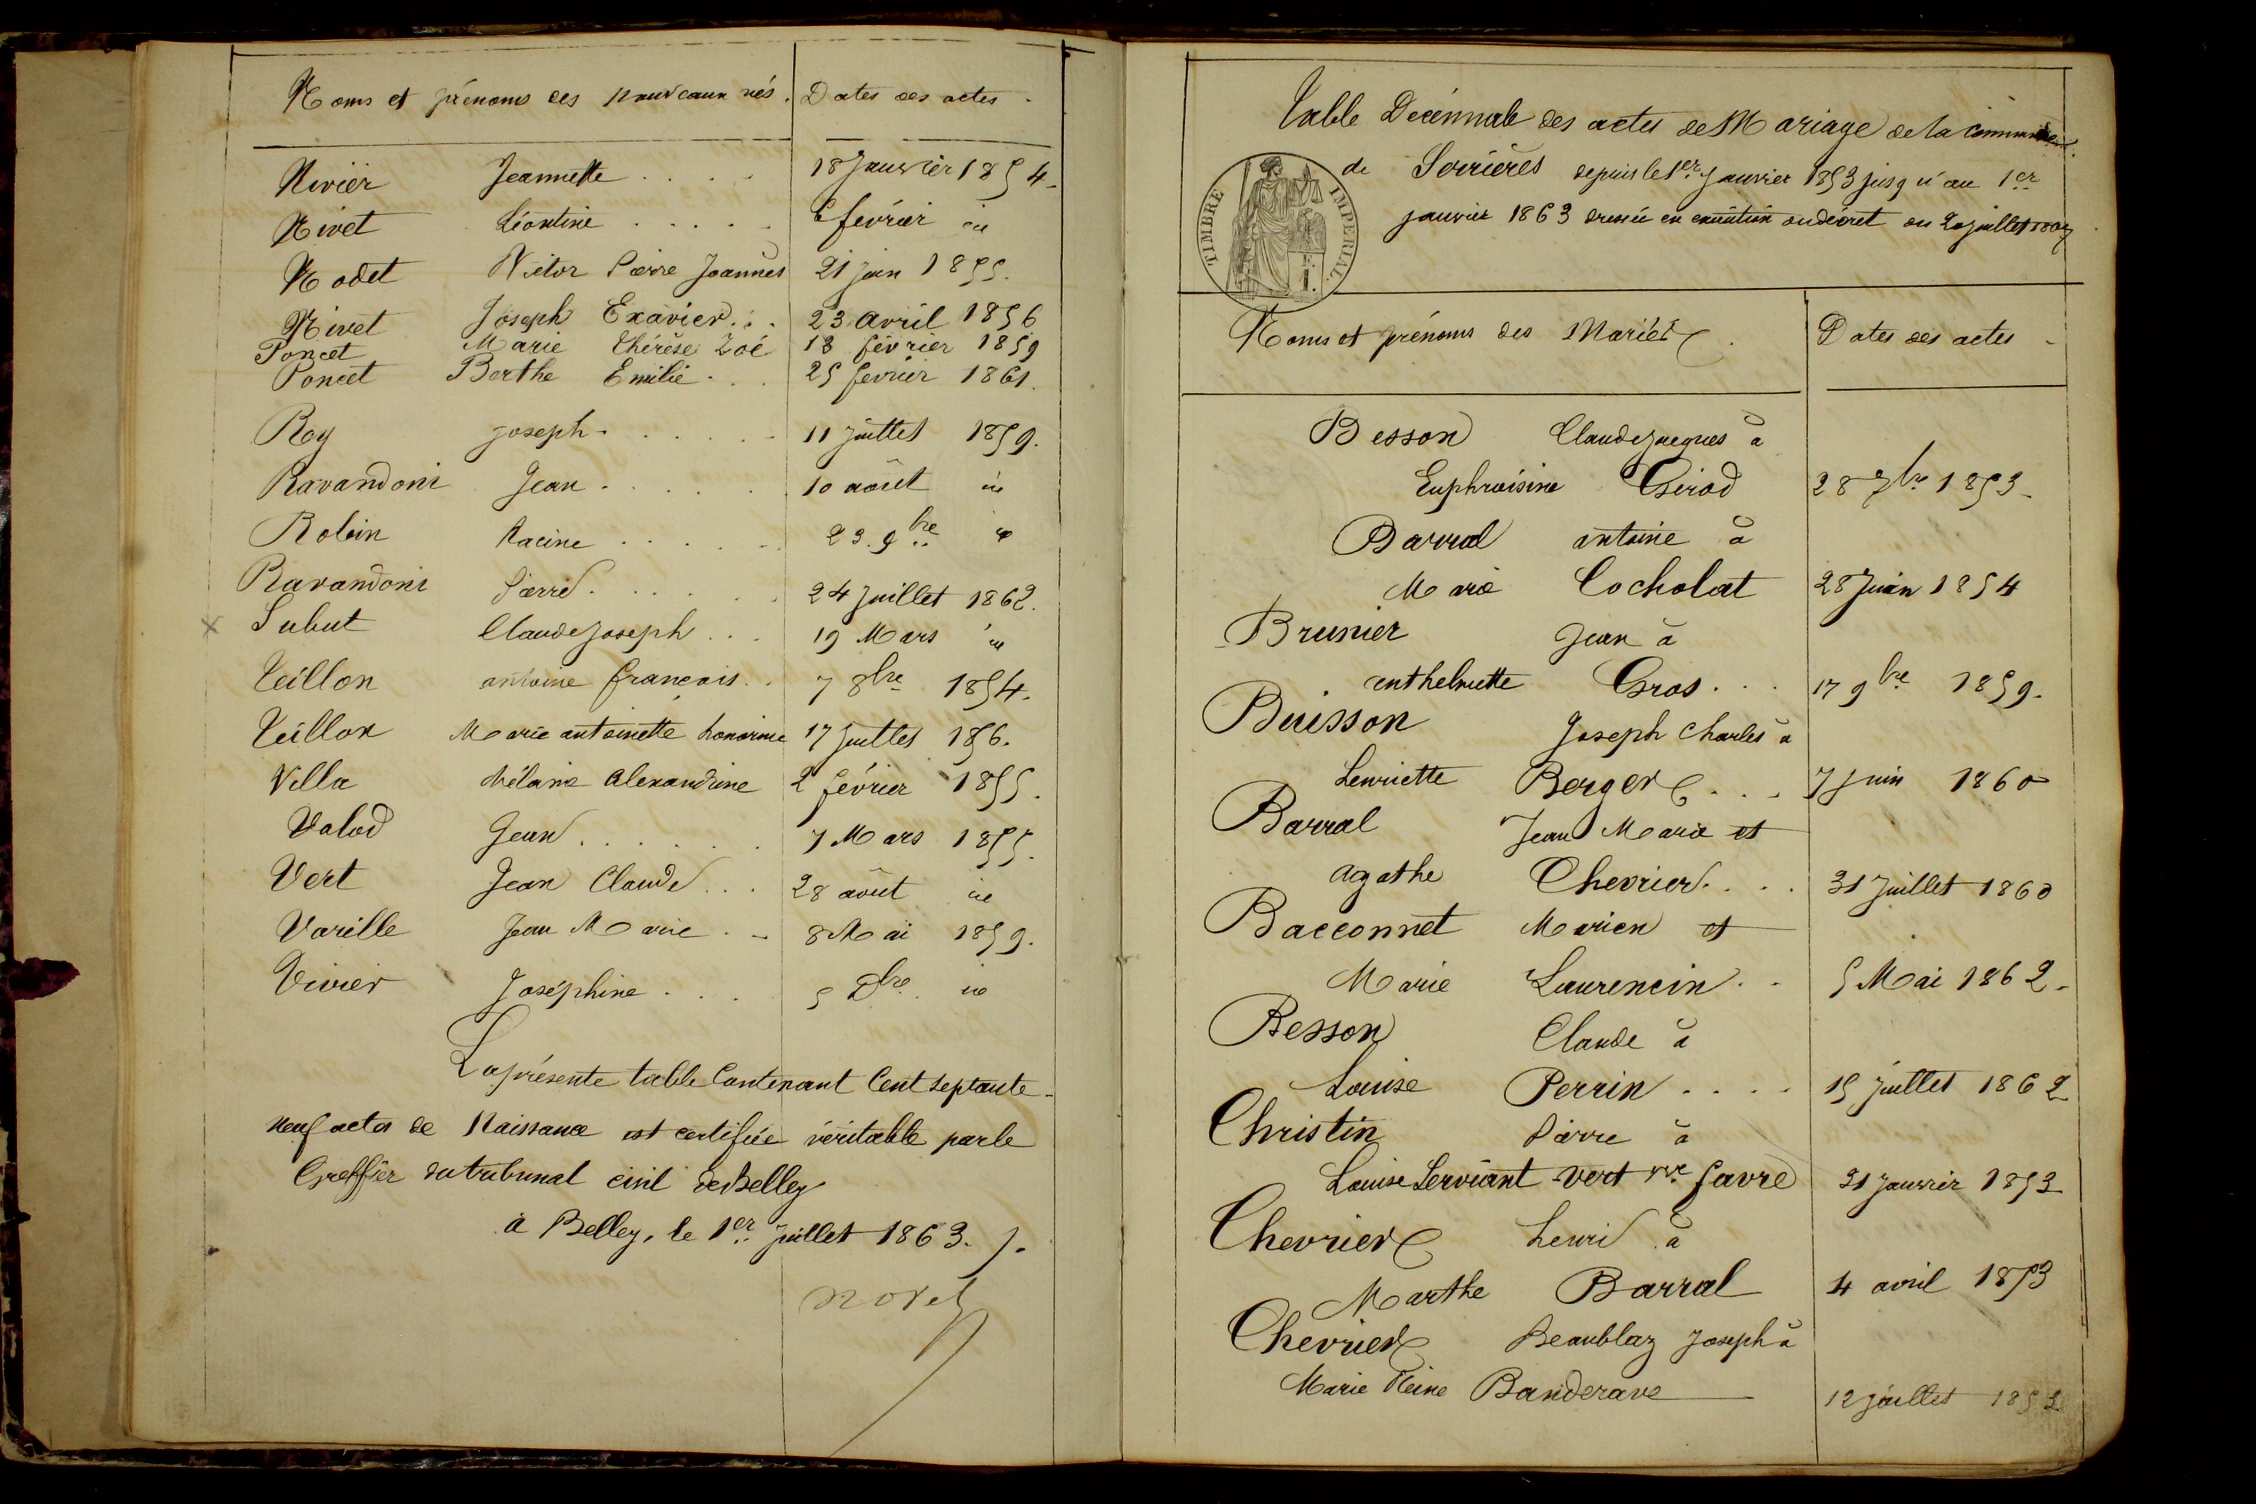 Noms et prénoms des nouveaux nés. Dates des actes.
Nivier Jeannette . . . . 18 Janvier 1854.
Nivet Léontine . . . . . 6 février id
Nodet Victor Pierre Joannès 21 juin 1855.
Nivet Joseph Exavier . . . 23 avril 1856
Poncet Marie Thérèse Zoé 18 février 1859
Poncet Berthe Emilie . . . 25 février 1861.
Roy joseph . . . . . . 11 juillet 1859.
Ravandoni Jean . . . . . . 10 août id
Robin Racine . . . . . . 23. 9bre id
Ravandoni Pierre . . . . . . 24 Juillet 1862.
x Subut Claude Joseph . . . 19 Mars id
Teillon antoine françois . . 7 8bre 1854.
Teillon Marie antoinette honorine 17 Juillet 186.
Villa Mélanie alexandrine 2 février 1855.
Valod Jean . . . . . . 7 Mars 1855.
Vert Jean Claude . . . 28 août id
Varille Jean Marie . . 8 Mai 1859.
Vivier Joséphine . . . . 5 Dbre id
La présente table Contenant Cent septante-
neuf actes de Naissance est certifiée véritable par le
Greffier du tribunal civil de Belley
à Belley, le 1er juillet 1863.
Table Décennale des actes de Mariage de la commune
TIMBRE IMPERIAL.
de Serrières depuis le 1er Janvier 1853 jusqu'au 1er
janvier 1863 dressée en exécution du décret du 20 juillet 1807
Noms et prénoms des Mariés. Dates des actes.
Besson Claude Jacques à
Euphroisine Girod 28 7bre 1853.
Barral antoine à
Marie Cocholat 28 Juin 1854
Brunier Jean à
anthelmette Gros . . . 17 9bre 1859.
Buisson Joseph Charles à
henriette Berger . . . 7 Juin 1860
Barral Jean Marie et
agathe Chevrier . . . . 31 Juillet 1860
Bacconnet Marien et
Marie Laurencin . . 5 Mai 1862.
Besson Claude à
Louise Perrin . . . . 15 juillet 1862
Christin Pierre à
Louise Servant Vert vve favre 31 janvier 1853
Chevrier henri à
Marthe Barral 4 avril 1853
Chevrier Beaublaz Joseph à
Marie Reine Banderave 12 juillet 1853